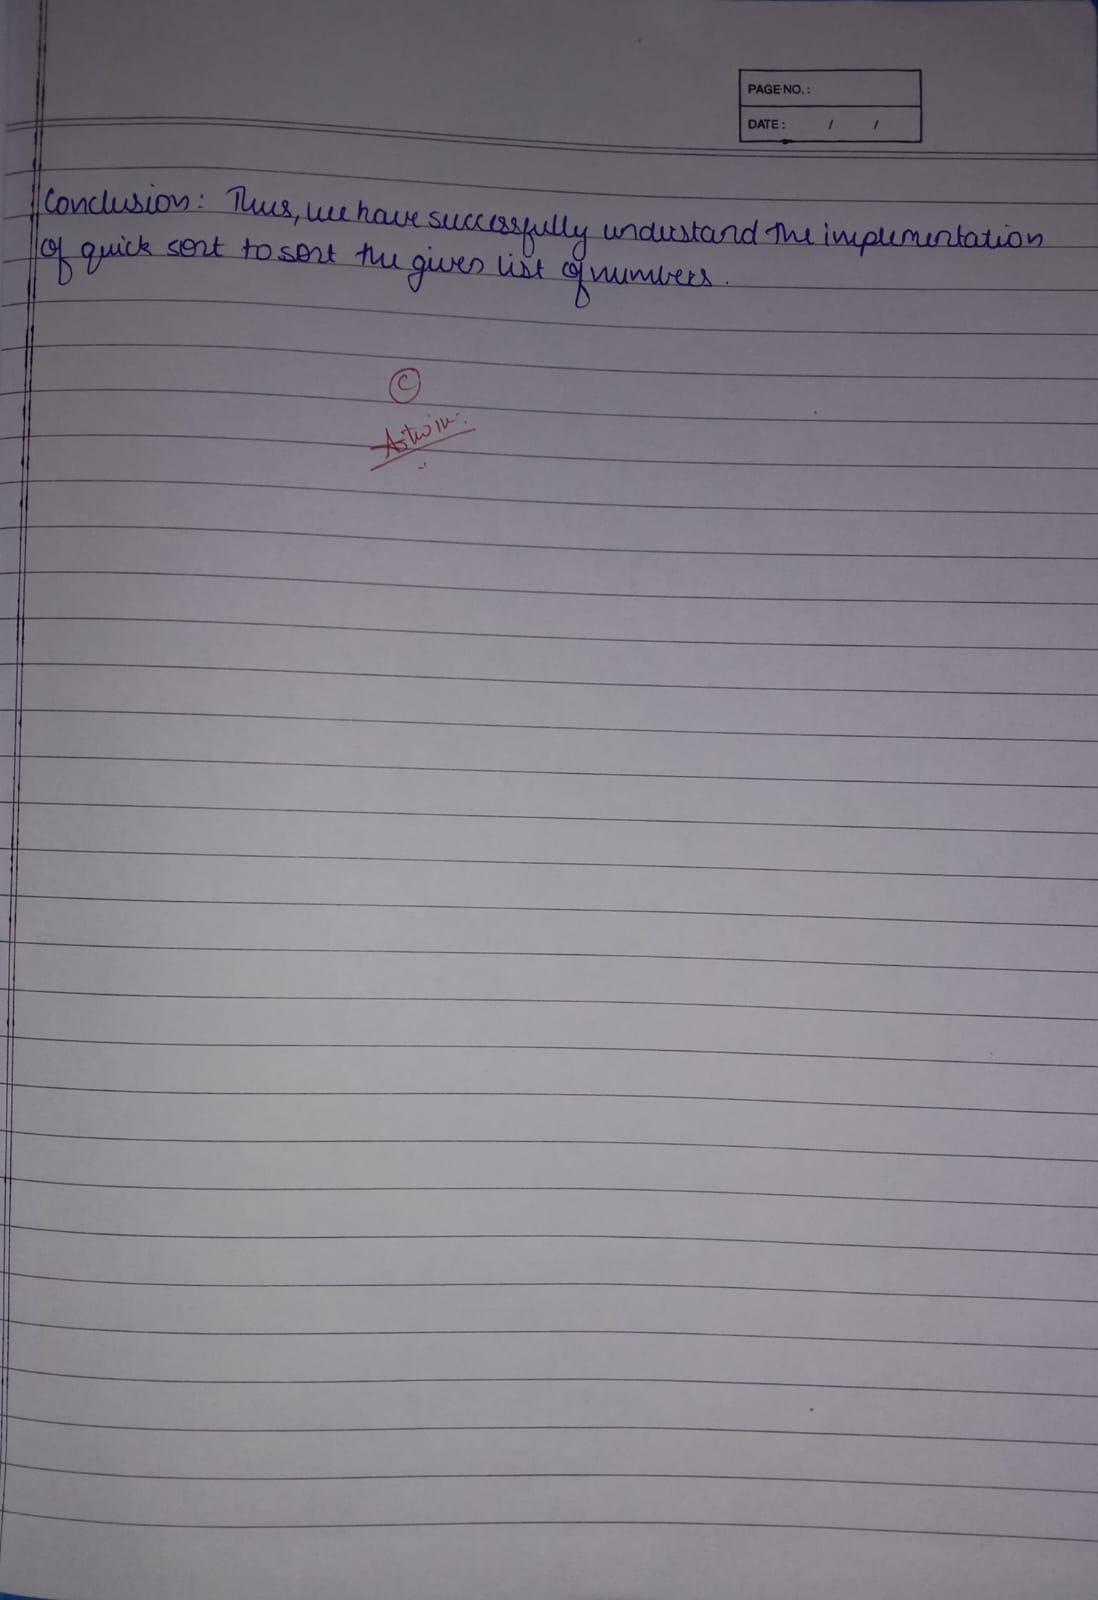 PAGE NO.:
DATE: / /
Conclusion: Thus, we have successfully understand the implementation
of quick sort to sort the given list of numbers.
C